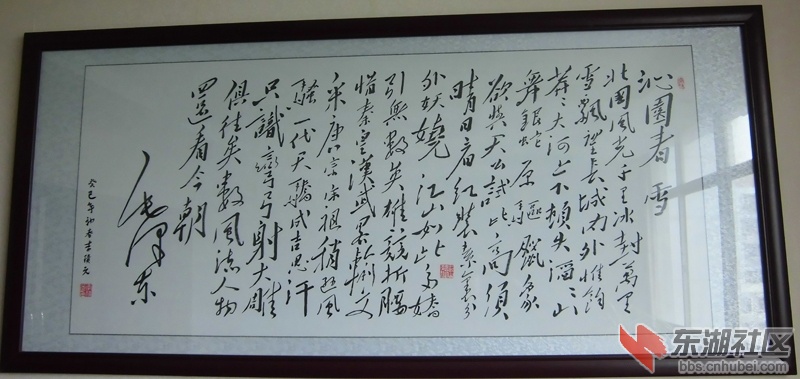 沁園春雪
北國風光千里冰封萬里
雪飄望長城內外惟餘
莽々大河上下頓失滔々山
舞銀蛇原驅蠟象
欲與天公試比高須
晴日看紅裝素裹分
外妖嬈江山如此多嬌
引無數英雄競折腰
惜秦皇漢武略輸文
采唐宗宋祖稍遜風
騷一代天驕成吉思汗
只識彎弓射大雕
俱往矣數風流人物
還看今朝
毛澤東
癸巳年初春
东湖社区
bbs.cnhubei.com